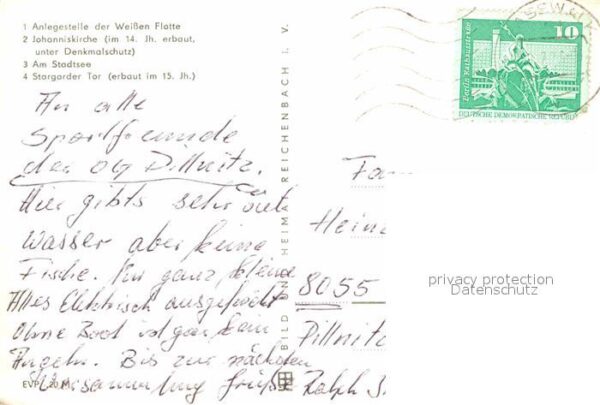 1 Anlegestelle der Weißen Flotte
2 Johanniskirche (im 14. Jh. erbaut,
unter Denkmalschutz)
3 Am Stadtsee
4 Stargarder Tor (erbaut im 15. Jh.)
An alle
Sportfreunde
der OG Pillnitz.
Hier gibts sehr viel
Wasser aber keine
Fische. Nur ganz kleine
Alles Elektrisch ausgefischt
Ohne Boot ist gar kein
Angeln. Bis zur nächsten
Versammlung grüßt Ralph
EVP
BILD UND HEIM REICHENBACH I. V.
10
Berlin Rathausstraße
DEUTSCHE DEMOKRATISCHE REPUBLIK
Heinz
8055
Pillnitz
privacy protection
Datenschutz